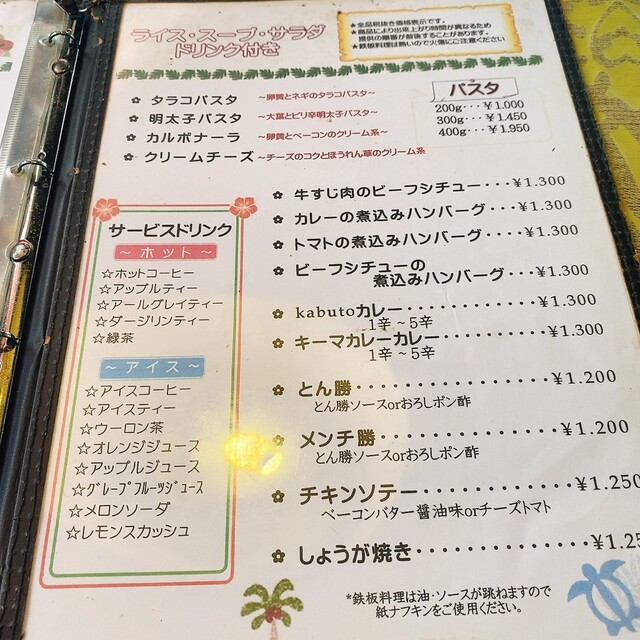 ライス・スープ・サラダ
ドリンク付き
★全品税抜き価格表示です。
★商品により出来上がり時間が異なるため
提供の順番が前後することがあります。
★鉄板料理は熱いので火傷にご注意ください
✿ タラコパスタ ～卵黄とネギのタラコパスタ～
✿ 明太子パスタ ～大葉とピリ辛明太子パスタ～
✿ カルボナーラ ～卵黄とベーコンのクリーム系～
✿ クリームチーズ ～チーズのコクとほうれん草のクリーム系
パスタ
200g・・・¥1.000
300g・・・¥1.450
400g・・・¥1.950
サービスドリンク
～ ホット ～
☆ホットコーヒー
☆アップルティー
☆アールグレイティー
☆ダージリンティー
☆緑茶
～ アイス ～
☆アイスコーヒー
☆アイスティー
☆ウーロン茶
☆オレンジジュース
☆アップルジュース
☆グレープフルーツジュース
☆メロンソーダ
☆レモンスカッシュ
✿ 牛すじ肉のビーフシチュー・・・¥1.300
✿ カレーの煮込みハンバーグ・・・¥1.300
✿ トマトの煮込みハンバーグ・・・¥1.300
✿ ビーフシチューの
煮込みハンバーグ・・・¥1.300
✿ kabutoカレー・・・・・・・・・・・・¥1.300
1辛 ～5辛
✿ キーマカレーカレー・・・・・・・・・¥1.300
1辛 ～5辛
✿ とん勝・・・・・・・・・・・・・・・・¥1.200
とん勝ソースorおろしポン酢
✿ メンチ勝・・・・・・・・・・・・・・・¥1.200
とん勝ソースorおろしポン酢
✿ チキンソテー・・・・・・・・・・・・・¥1.250
ベーコンバター醤油味orチーズトマト
✿ しょうが焼き・・・・・・・・・・・・・¥1.25
*鉄板料理は油・ソースが跳ねますので
紙ナフキンをご使用ください。